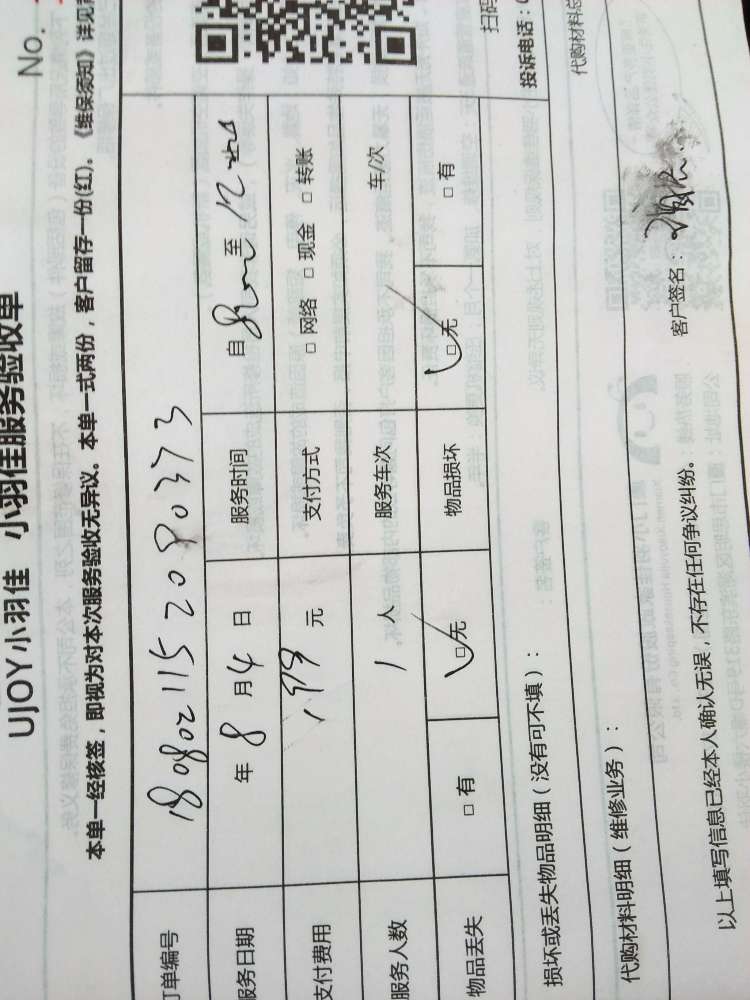 No.
UJOY小羽佳 小羽佳服务验收单
本单一经核签，即视为对本次服务验收无异议。本单一式两份，客户留存一份(红)。《维保须知》详见
订单编号 18080211520890373
服务日期 年 8 月 4 日 服务时间 自 至 12
支付费用 199 元 支付方式 □ 网络 □ 现金 □ 转账
服务人数 1 人 服务车次 车/次
物品丢失 □ 有 □无 物品损坏 □无 □ 有
扫码
投诉电话：0
损坏或丢失物品明细（没有可不填）：
代购材料总
代购材料明细（维修业务）：
客户签名：
以上填写信息已经本人确认无误，不存在任何争议纠纷。